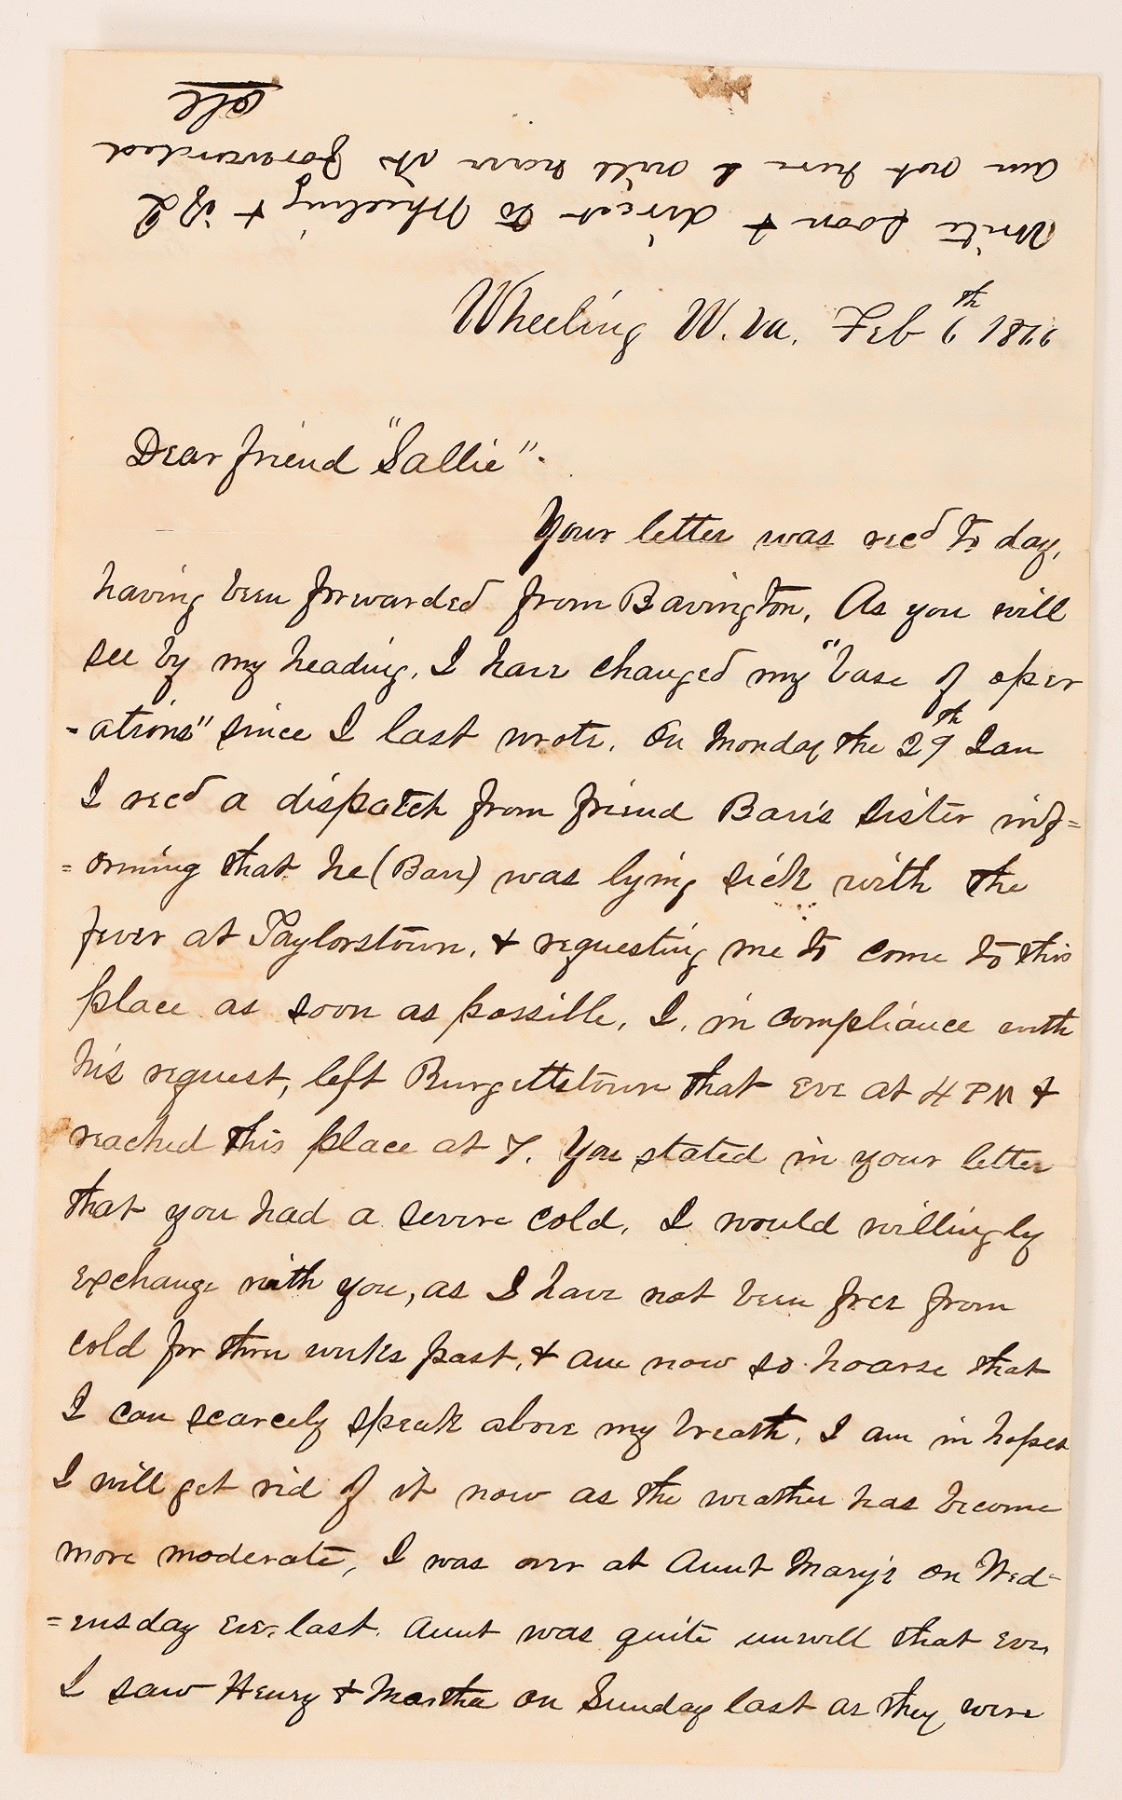 Write soon & direct to Wheeling & if I
am not here I will have it forwarded
Wheeling W. Va. Feb 6th 1866
Dear friend "Sallie".
Your letter was recd to day,
having been forwarded from Bavington. As you will
see by my heading, I have changed my "base of oper
-ations" since I last wrote. On Monday the 29th Jan
I recd a dispatch from friend Bau's sister inf=
=orming that he (Bau) was lying sick with the
fever at Taylorstown, & requesting me to come to this
place as soon as possible. I, in compliance with
his request, left Burgettstown that eve at 4 PM &
reached this place at 7. You stated in your letter
that you had a severe cold. I would willingly
exchange with you, as I have not been free from
cold for three weeks past, & am now so hoarse that
I can scarcely speak above my breath. I am in hopes
I will get rid of it now as the weather has become
more moderate, I was over at Aunt Mary's on Wed-
=ensday eve. last. Aunt was quite unwell that eve.
I saw Henry & Martha on Sunday last as they were